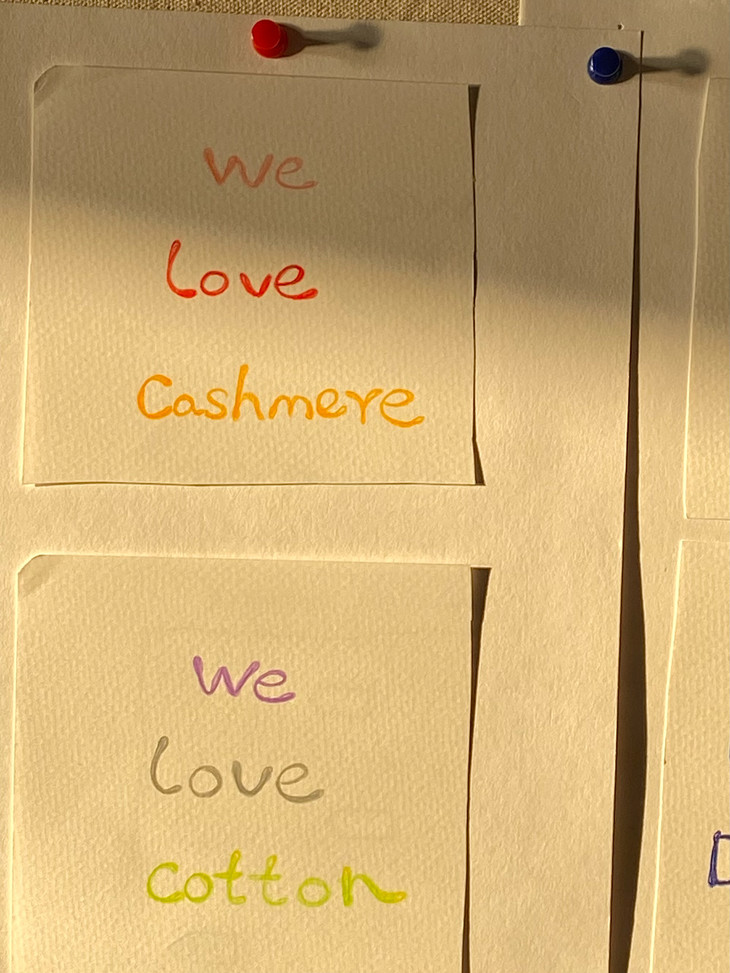 We
Love
Cashmere
We
Love
Cotton